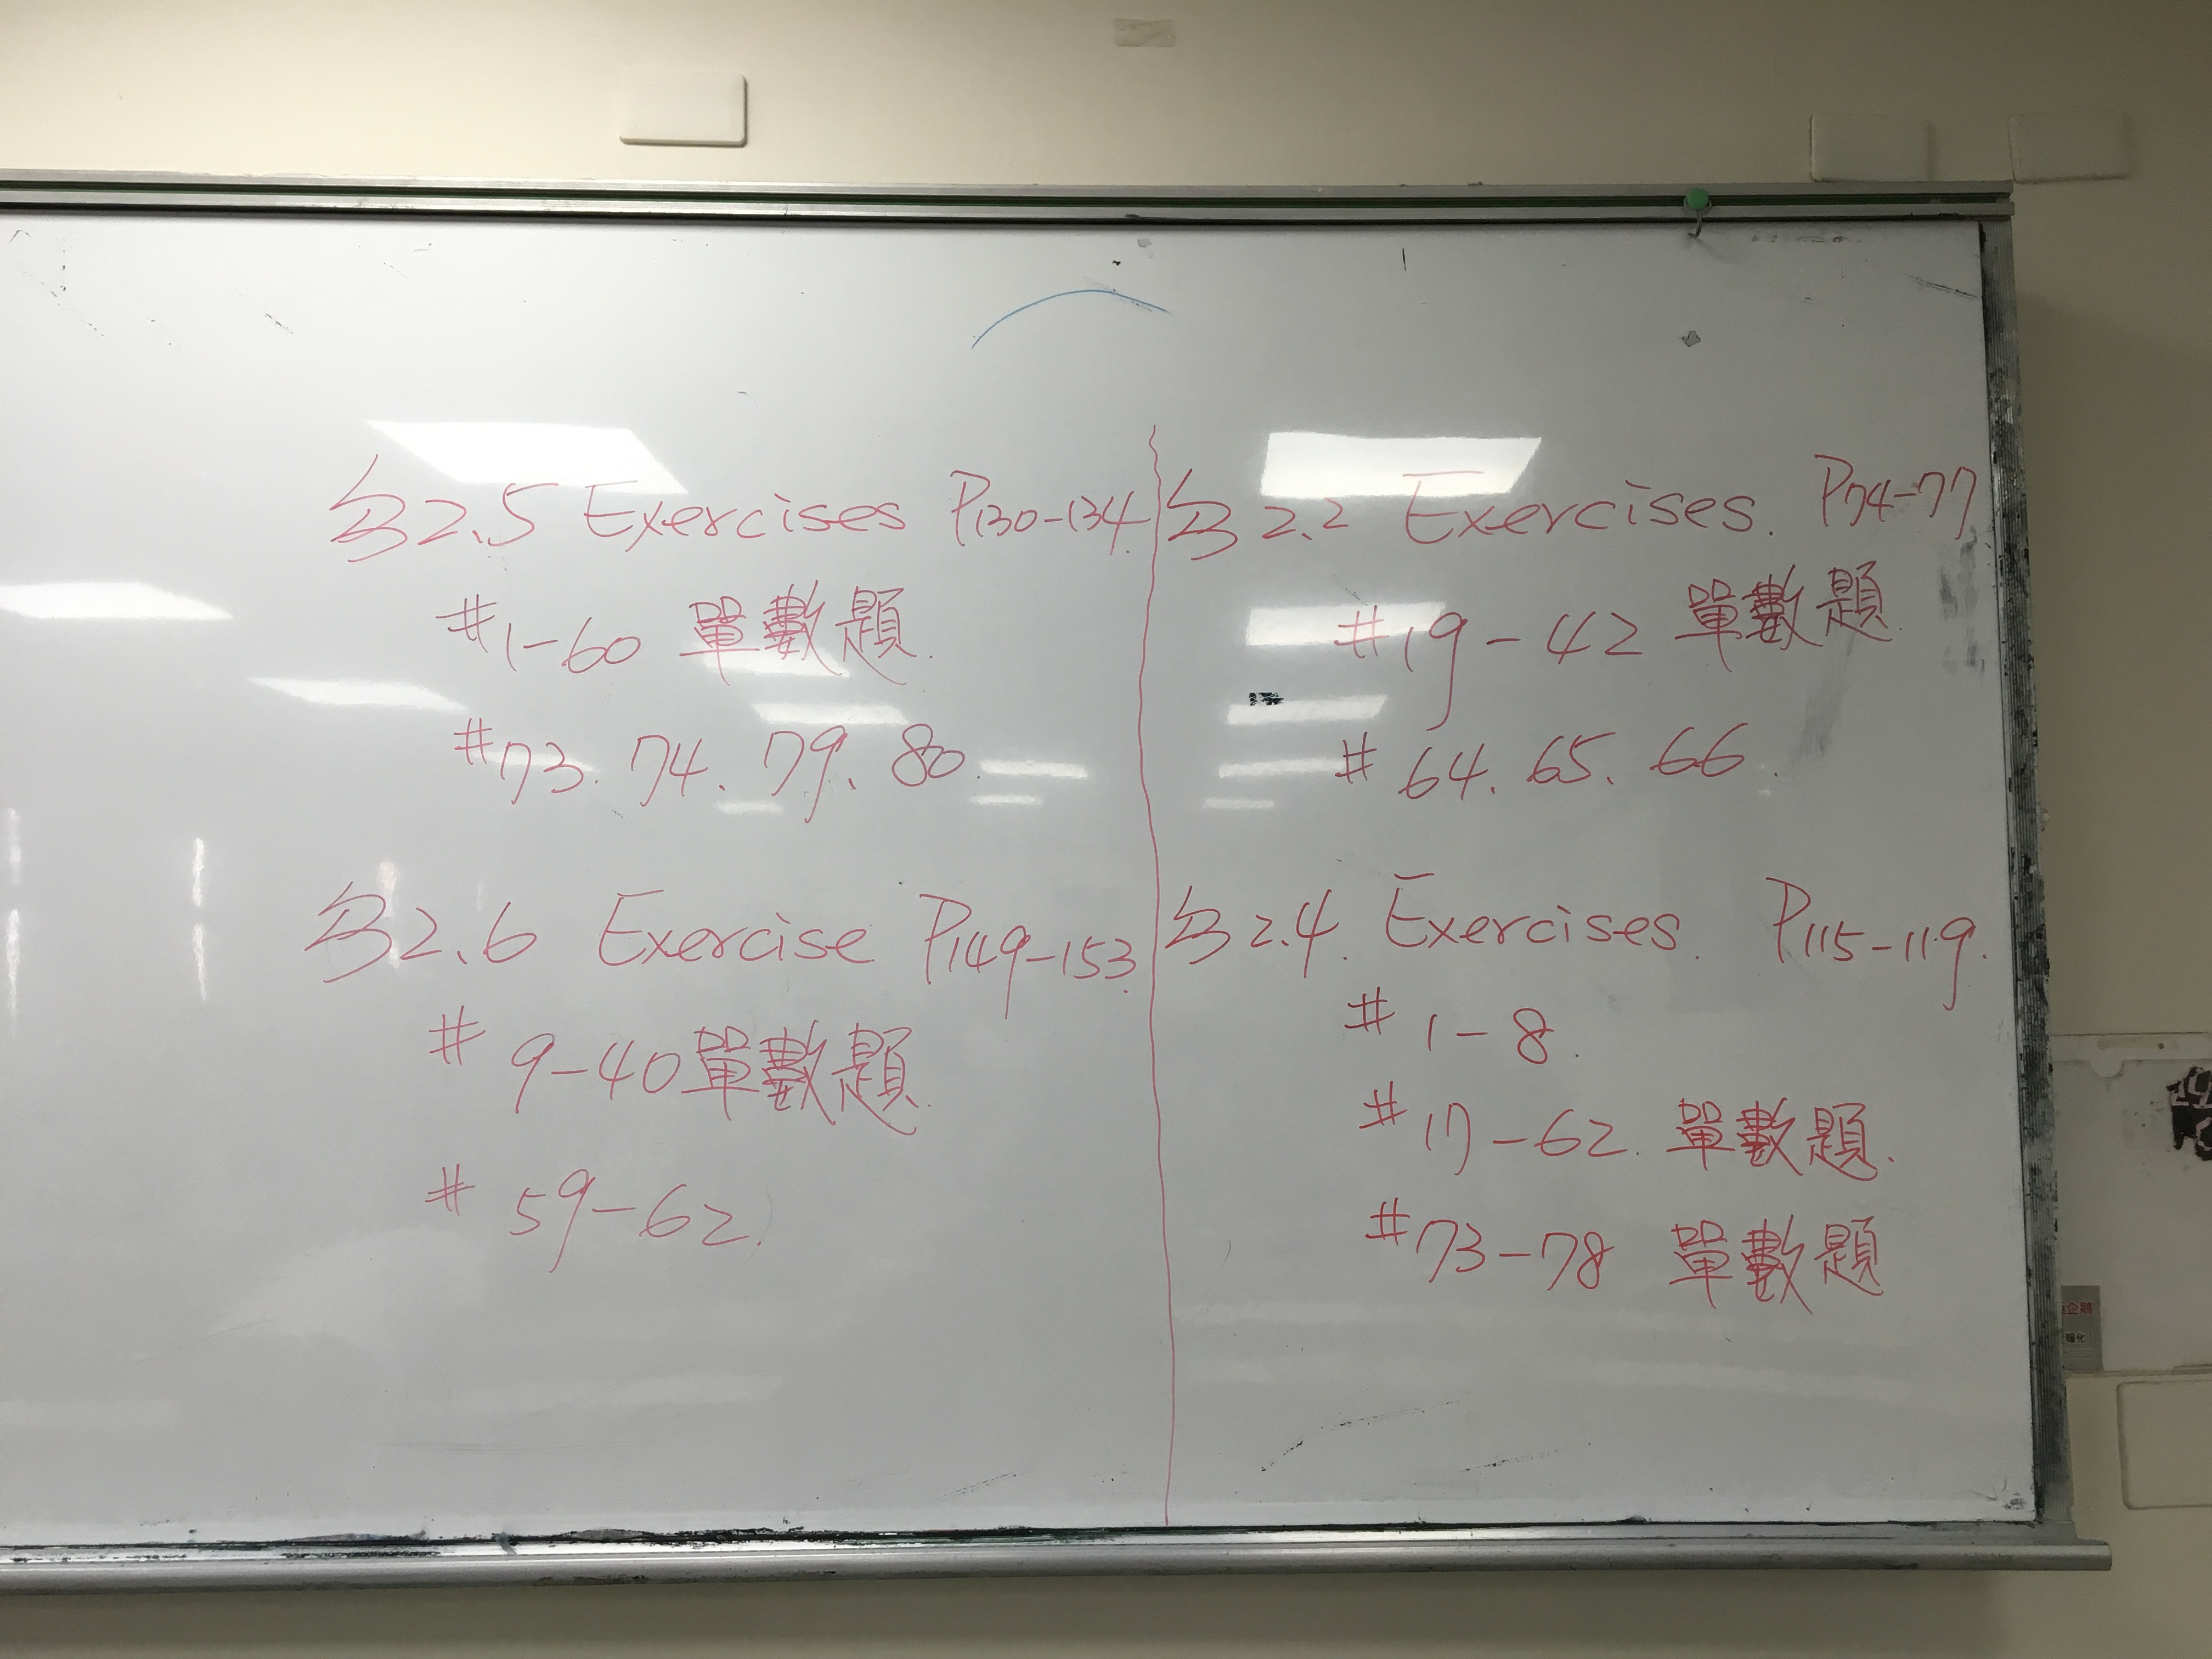 §2.5 Exercises P130-134.
#1-60 單數題.
#73. 74、79、80.
§2.6 Exercise P149-153.
# 9-40 單數題.
# 59-62.
§2.2 Exercises. P74-77
#19-42 單數題.
# 64、65、66.
§2.4. Exercises. P115-119.
# 1-8.
# 17-62. 單數題.
#73-78 單數題